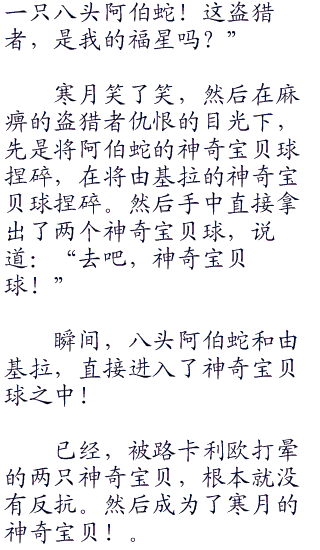 一只八头阿伯蛇！这盗猎
者，是我的福星吗？”
寒月笑了笑，然后在麻
痹的盗猎者仇恨的目光下，
先是将阿伯蛇的神奇宝贝球
捏碎，在将由基拉的神奇宝
贝球捏碎。然后手中直接拿
出了两个神奇宝贝球，说
道：“去吧，神奇宝贝
球！”
瞬间，八头阿伯蛇和由
基拉，直接进入了神奇宝贝
球之中！
已经，被路卡利欧打晕
的两只神奇宝贝，根本就没
有反抗。然后成为了寒月的
神奇宝贝！。